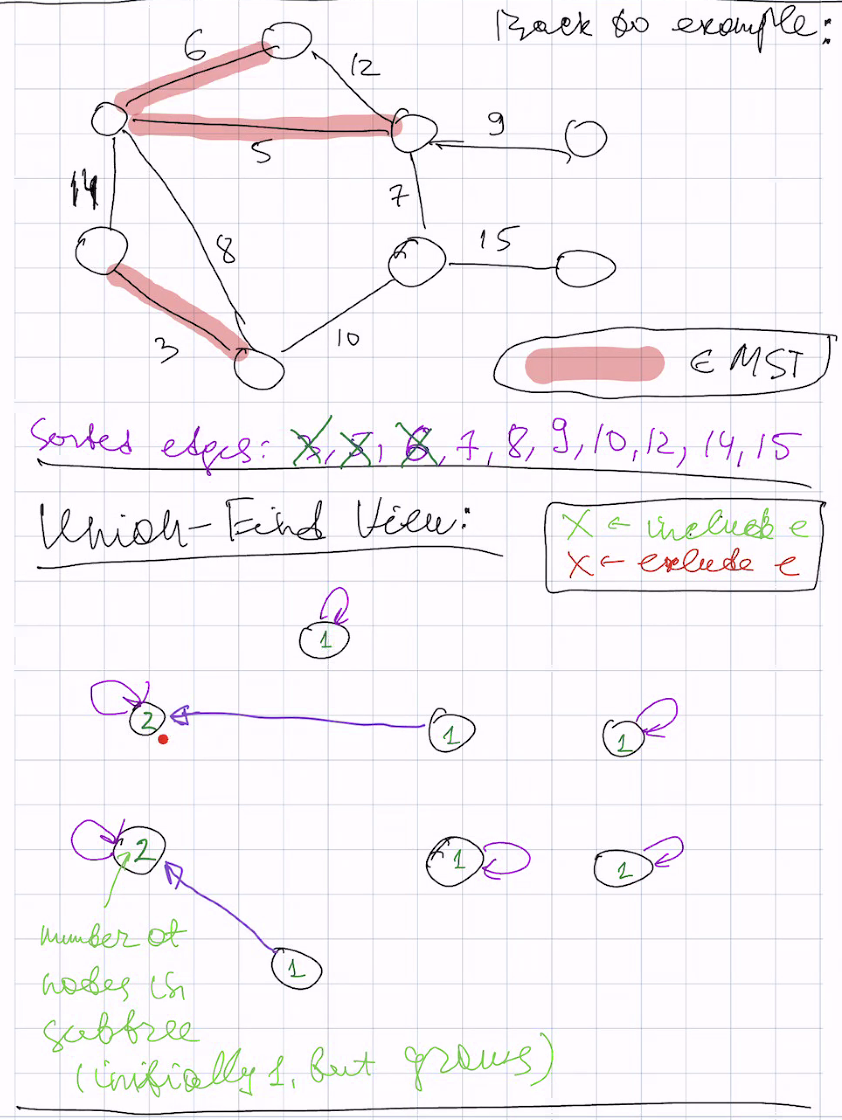 Back to example:
6
12
9
5
14
7
8
15
3
10
∈ MST
Sorted edges: 3, 5, 6, 7, 8, 9, 10, 12, 14, 15
Union-Find View:
X ← include e
X ← exlude e
1
2
1
1
2
1
1
1
number of
nodes in
subtree
(initially 1, but grows)